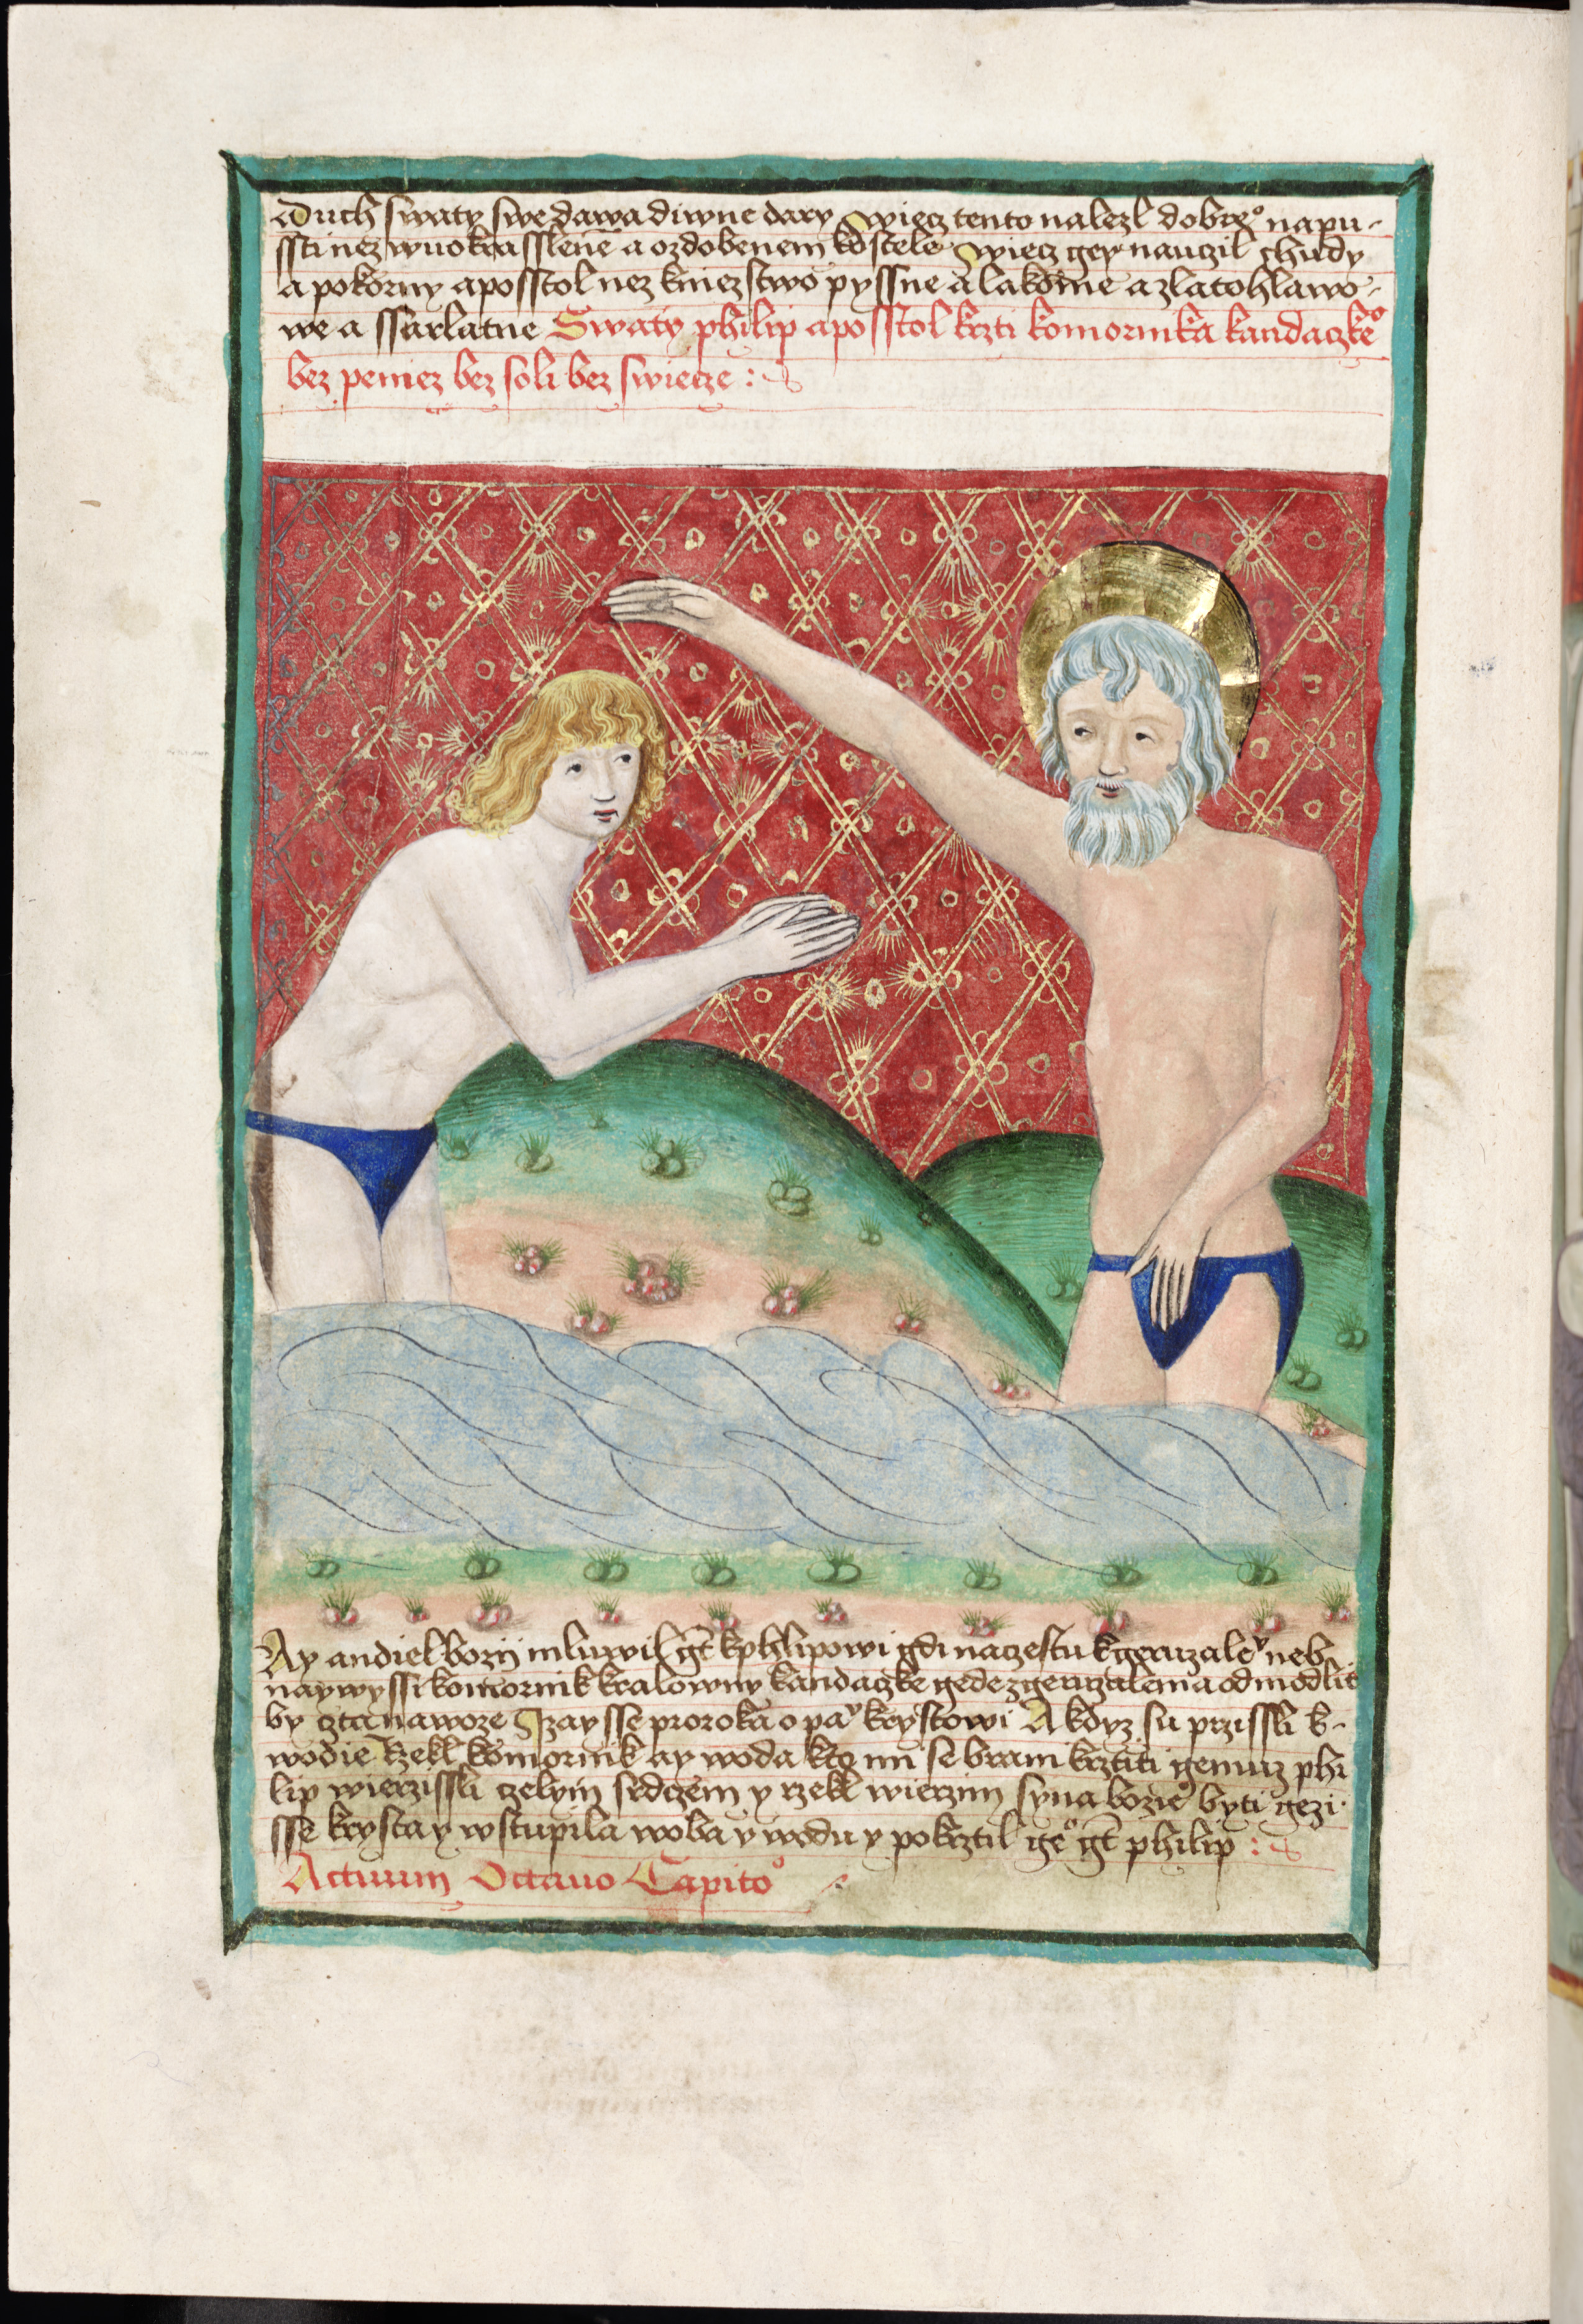 Duch swaty swe dawa diwne dary wiecz tento nalezl dobre° na pu-
ssti nez wuokrasslene̅ a ozdobenem kostele wiecz gey nauczil chudy
a pokorny aposstol nez kniezstwo pyssne a lakome a zlatohlawo-
we a ssarlatne Swaty philip aposstol krzti komornika kandaczke°
bez peniez bez soli bez swiecze :
Ay andiel bozij mluwil gt̅ kphlipowi gdi na czestu kgeruzale̅ neb
naywyssi komornik kralowny kandaczke gede zgeruzalema od modlit
by czta na woze Izaysse proroka o pa̅ krystowi A kdyz su przissli k-
wodie Rzekl komornik ay woda kto mi se brani krztiti gemuz phi
lip wierzissli czelym srdczem y rzekl wierzim syna bozie° byti gezi-
sse krysta y wstupila woba v wodu y pokrztil ge° gt̅ philip :
Actuum Octauo Capito°